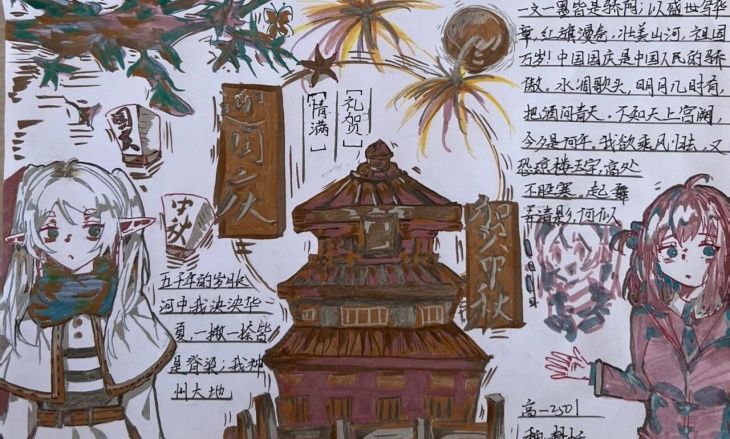 一文一墨皆是骄阳；以盛世年华
华,红旗漫卷,壮美山河,祖国
万岁!中国国庆是中国人民的骄
傲,水调歌头,明月几时有,
把酒问青天,不知天上宫阙,
今夕是何年,我欲乘风归去,又
恐琼楼玉宇,高处
不胜寒,起舞
弄清影,何似
[礼贺]
[情满]
迎国庆
国庆
中秋
贺中秋
五千年的岁月长
河中我泱泱华
夏,一撇一捺皆
是脊梁;我神
州大地
高一2501